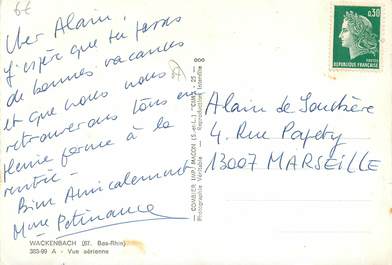 6€
Cher Alain,
J'espère que tu passes
de bonnes vacances
et que nous nous
retrouverons tous en
pleine forme à la
rentrée -
Bien Amicalement
Mme
WACKENBACH (67. Bas-Rhin)
383-99 A - Vue aérienne
COMBIER IMP. MACON (S.-et-L.) "CIM"
Photographie Véritable - Reproduction Interdite
0,30
REPUBLIQUE FRANÇAISE
POSTES
Alain de
4. Rue
13007 MARSEILLE